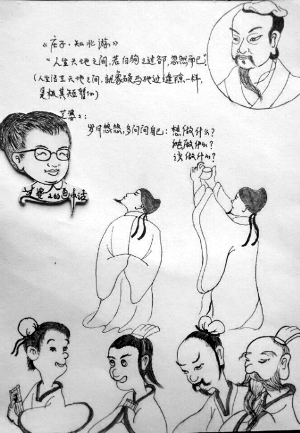 《庄子·知北游》
“人生天地之间，若白驹之过郤，忽然而已。”
（人生活在天地之间，就象骏马驰过缝隙一样，
是极其短暂的）
艾墨：
岁月悠悠，多问问自己：想做什么？
能做什么？
该做什么？